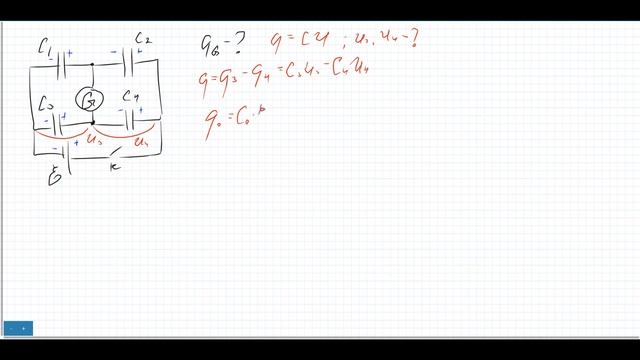 C₁
C₂
G
C₃
C₄
U₃
U₄
K
q_G - ? q = CU ; U₃, U₄ - ?
q = q₃ - q₄ = C₃U₃ - C₄U₄
q₀ = C₀ ·